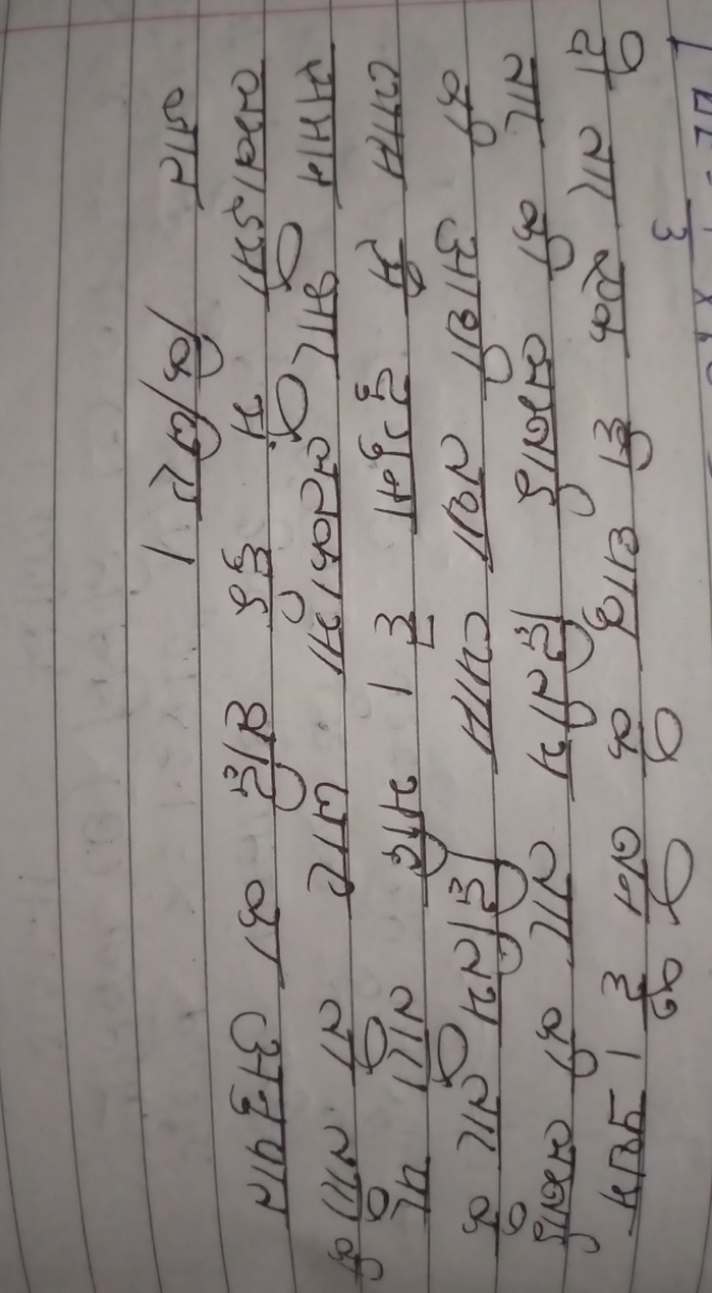 दो तार एक ही धातु के बने है। प्रथम
तार की लम्बाई द्वितीय तार की लम्बाई
की आधी तथा व्यास द्वितिय तार के
व्यास से दुगुना है। यदि तारो पर
समान भार लटकाया जाए तो तारो की
लम्बाइयो में हुई वृद्धि का अनुपात
ज्ञात कीजिए।